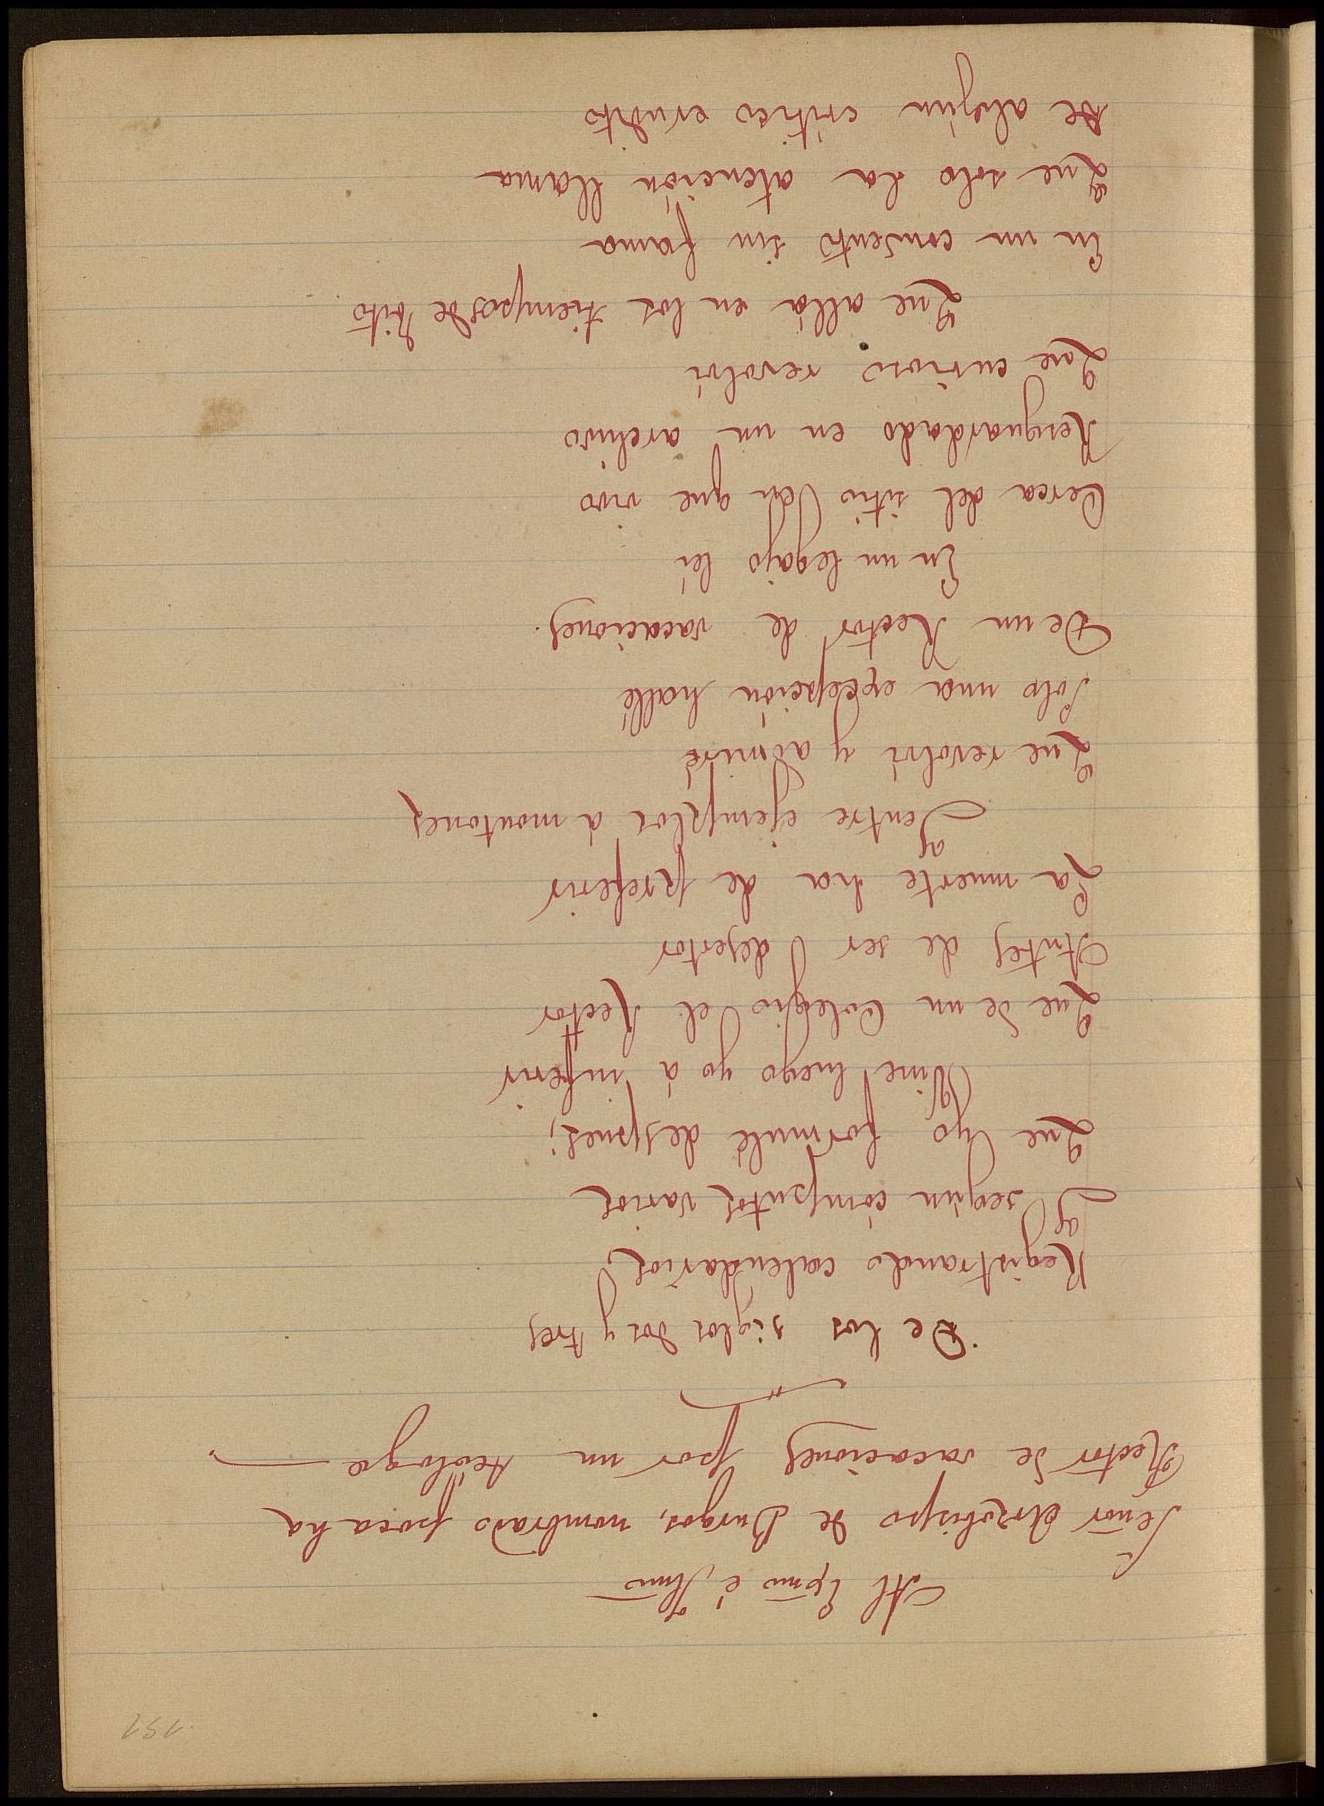 157
Al Exmo é Ilmo
Señor Arzobispo de Burgos, nombrado poca ha
Rector de vacaciones por un teólogo
De los siglos dos y tres
Registrando calendarios
Y según cómputos varios
Que yo formulé despues;
Vine luego yo á inferir
Que de un Colegio el Rector
Antes de ser desertor
La muerte ha de preferir
Y entre ejemplos á montones
Que revolví y admiré
Solo una excepción hallé
De un Rector de vacaciones.
En un legajo leí
Cerca del sitio en que vivo
Resguardado en un archivo
Que curioso revolví
Que allá en los tiempos de Tito
En un convento sin fama
Que solo la atención llama
De algún crítico erudito